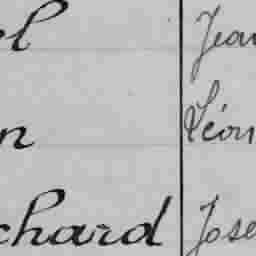 el Jean
n Léon
chard Jose